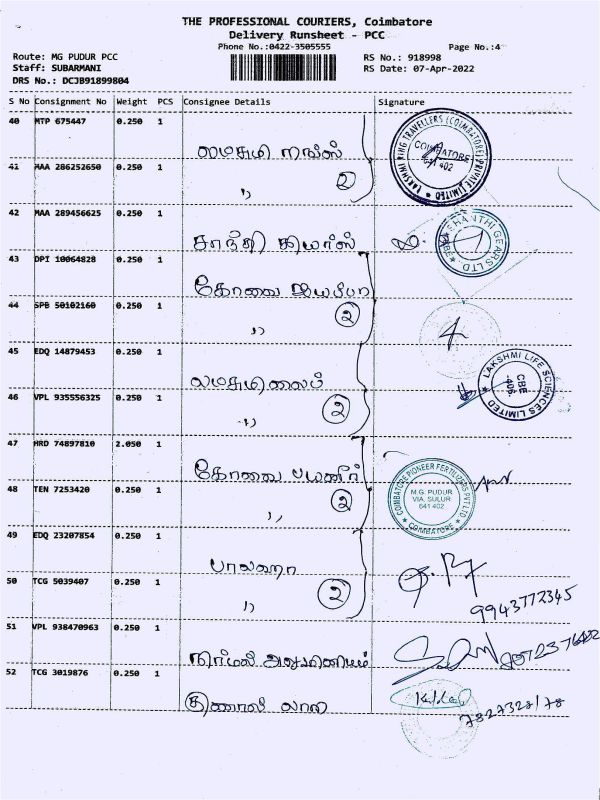 THE PROFESSIONAL COURIERS, Coimbatore
Delivery Runsheet - PCC
Phone No.:0422-3505555
Page No.:4
Route: MG PUDUR PCC
RS No.: 918998
Staff: SUBARMANI
RS Date: 07-Apr-2022
DRS No.: DCJB91899804
S No Consignment No Weight PCS Consignee Details Signature
40 MTP 675447 0.250 1
LAKSHMI RING TRAVELLERS (COIMBATORE) PRIVATE LIMITED
COIMBATORE
641 402
41 MAA 286252650 0.250 1 ,, 2
42 MAA 289456625 0.250 1
சாந்தி கியர்ஸ்
SHANTHI GEARS LTD
43 DPI 10064828 0.250 1
கோவை
44 SPB 50102160 0.250 1 ,, 2
45 EDQ 14879453 0.250 1
LAKSHMI LIFE SCIENCES LIMITED
CBE
406
46 VPL 935556325 0.250 1 ,, 2
47 HRD 74897810 2.050 1
கோவை
COIMBATORE PIONEER FERTILIZERS PVT LTD
M.G. PUDUR
VIA. SULUR
641 402
COIMBATORE
48 TEN 7253420 0.250 1 ,, 2
49 EDQ 23207854 0.250 1
பாலஹா
50 TCG 5039407 0.250 1 ,, 2
9943772345
51 VPL 938470963 0.250 1
நிர்மல்
52 TCG 3019876 0.250 1